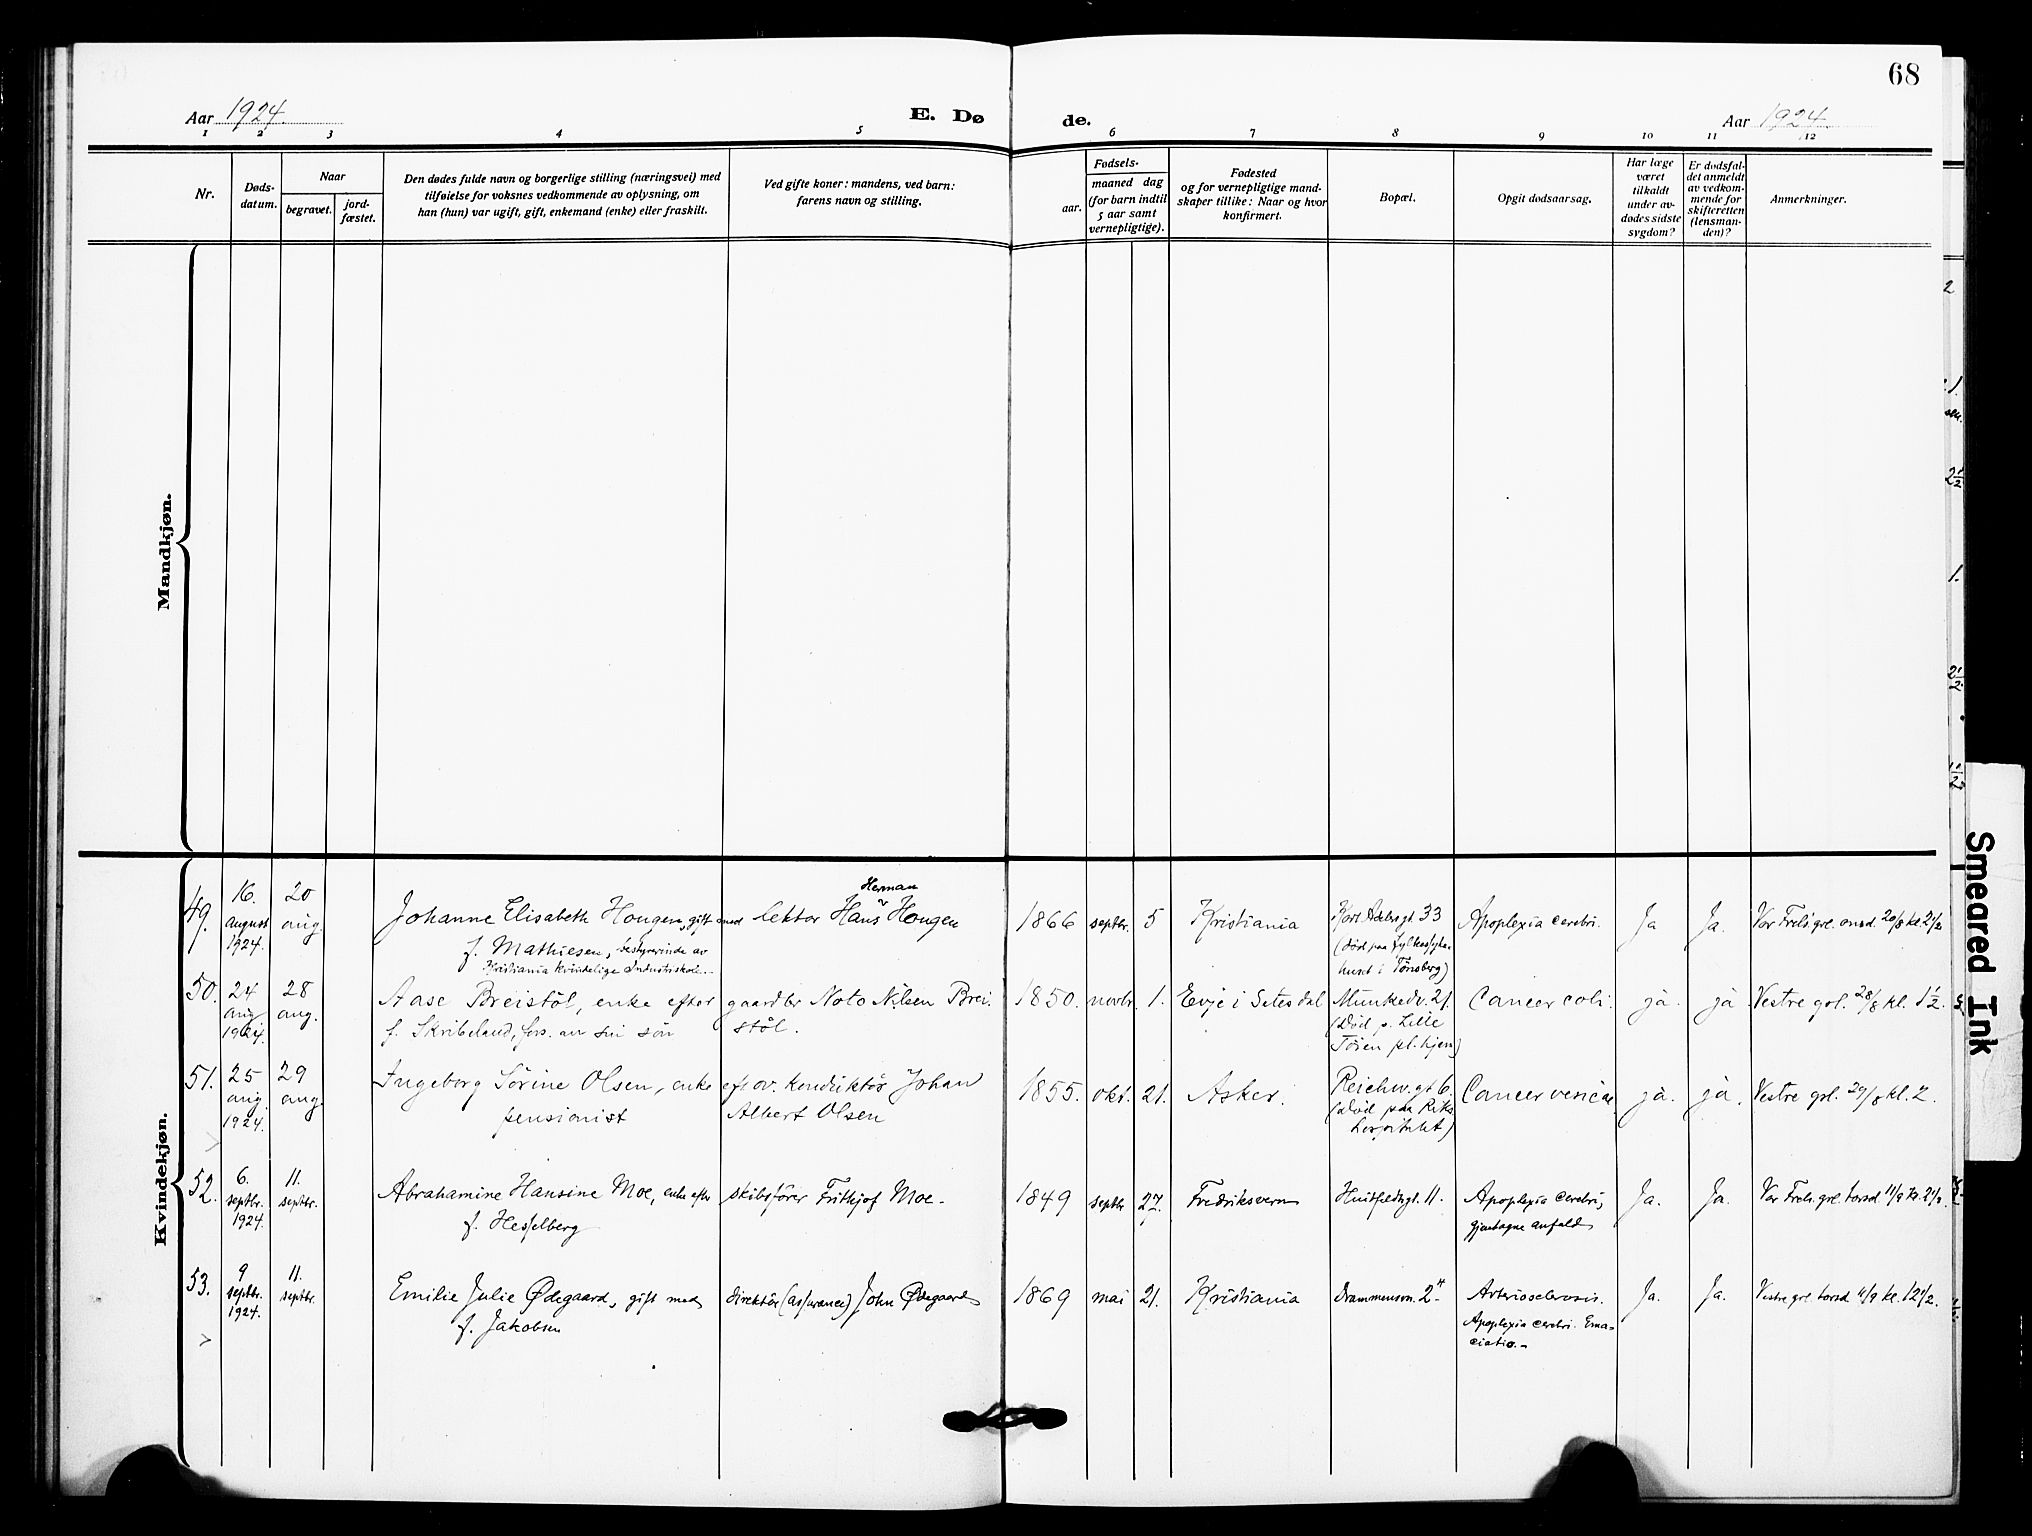 68
Aar 1924.
E. Dø de.
Aar 1924.
1 2 3 4 5 6 7 8 9 10 11 12
Nr.
Døds-
datum.
Naar
begravet.
jord-
fæstet.
Den dødes fulde navn og borgerlige stilling (næringsvei) med
tilføielse for voksnes vedkommende av oplysning, om
han (hun) var ugift, gift, enkemand (enke) eller fraskilt.
Ved gifte koner: mandens, ved barn:
farens navn og stilling.
Fødsels-
aar.
maaned dag
(for barn indtil
5 aar samt
vernepligtige).
Fødested
og for vernepligtige mand-
skaper tillike: Naar og hvor
konfirmert.
Bopæl.
Opgit dødsaarsag.
Har læge
været
tilkaldt
under av-
dødes sidste
sygdom?
Er dødsfal-
det anmeldt
av vedkom-
mende for
skifteretten
(lensman-
den)?
Anmerkninger.
Mandkjøn.
Kvindekjøn.
49.
16.
august
1924.
20
aug.
Johanne Elisabeth Hougen, gift med
f. Mathiesen, bestyrerinde av
Kristiania kvindelige Industriskole.
Herman
lektor Hans Hougen
1866 septbr. 5
Kristiania
Kort Adelersgt. 33
(død paa Fylkessyke-
huset i Tønsberg)
Apoplexia cerebri.
Ja
Ja.
Vor Frels. grl. onsd. 20/8 kl. 2 1/2
50.
24
aug
1924.
28
aug.
Aase Breistøl, enke efter
f. Skribeland, fors. av sin søn
gaardbr Noto Nilsen Brei-
støl.
1850. novbr. 1.
Evje i Setesdal
Munkedv. 21
(Død p. Lille
Tøien pl.hjem)
Cancer coli.
ja.
ja
Vestre grl. 28/8 kl. 1 1/2.
51.
25
aug.
1924.
29
aug.
Ingeborg Sørine Olsen, enke
pensionist
eft ov. konduktør Johan
Albert Olsen
1855. okt. 21.
Asker.
Reichw.gt 6.
(Død paa Riks
hospitalet)
Cancer vesicae
ja.
ja.
Vestre grl. 29/8 kl. 2.
52.
6.
septbr.
1924.
11.
septbr.
Abrahamine Hansine Moe, enke efter
f. Hesselberg
skibsfører Frithjof Moe.
1849 septbr 27.
Fredriksvern
Huitfeldtsgt. 11.
Apoplexia cerebri,
gjentagne anfald
Ja.
Ja.
Vor Frels. grl. torsd. 11/9 kl. 2 1/2.
53.
9
septbr.
1924.
11.
septbr.
Emilie Julie Ødegaard, gift med
f. Jakobsen
direktør (assurance) John Ødegaard
1869 mai 21.
Kristiania
Drammensvn. 2
Arteriosclerosis.
Apoplexia cerebri. Ema-
ciatio.
Ja.
Ja.
Vestre grl. torsd. 11/9 kl. 12 1/2.
Smeared Ink